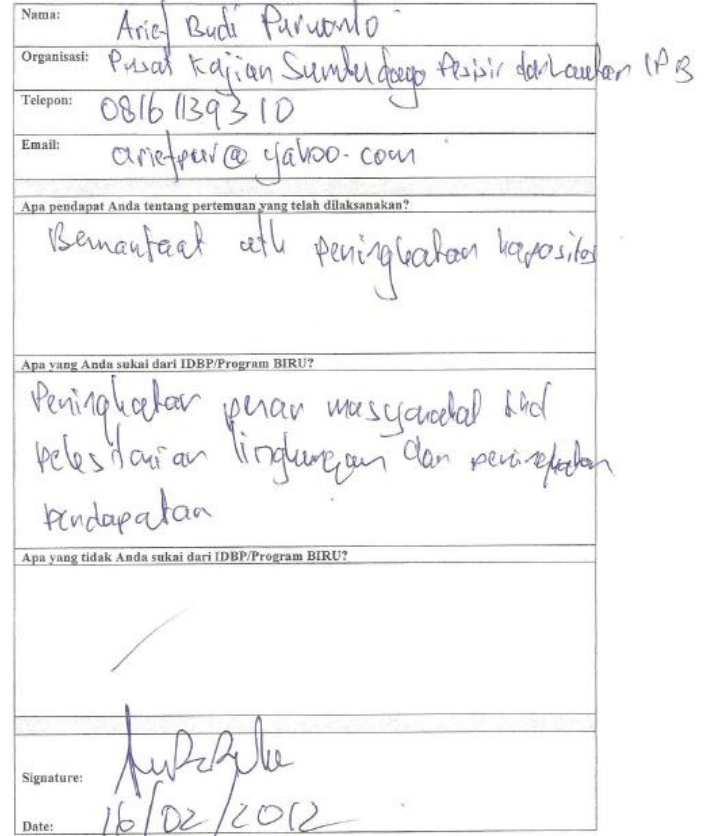 Nama: Arief Budi Purwanto
Organisasi: Pusat Kajian Sumberdaya Pesisir dan Lautan IPB
Telepon: 08161139310
Email: ariefpur@yahoo.com
Apa pendapat Anda tentang pertemuan yang telah dilaksanakan?
Bermanfaat utk peningkatan kapasitas
Apa yang Anda sukai dari IDBP/Program BIRU?
Peningkatan peran masyarakat thd
pelestarian lingkungan dan peningkatan
pendapatan
Apa yang tidak Anda sukai dari IDBP/Program BIRU?
Signature:
Date: 16/02/2012